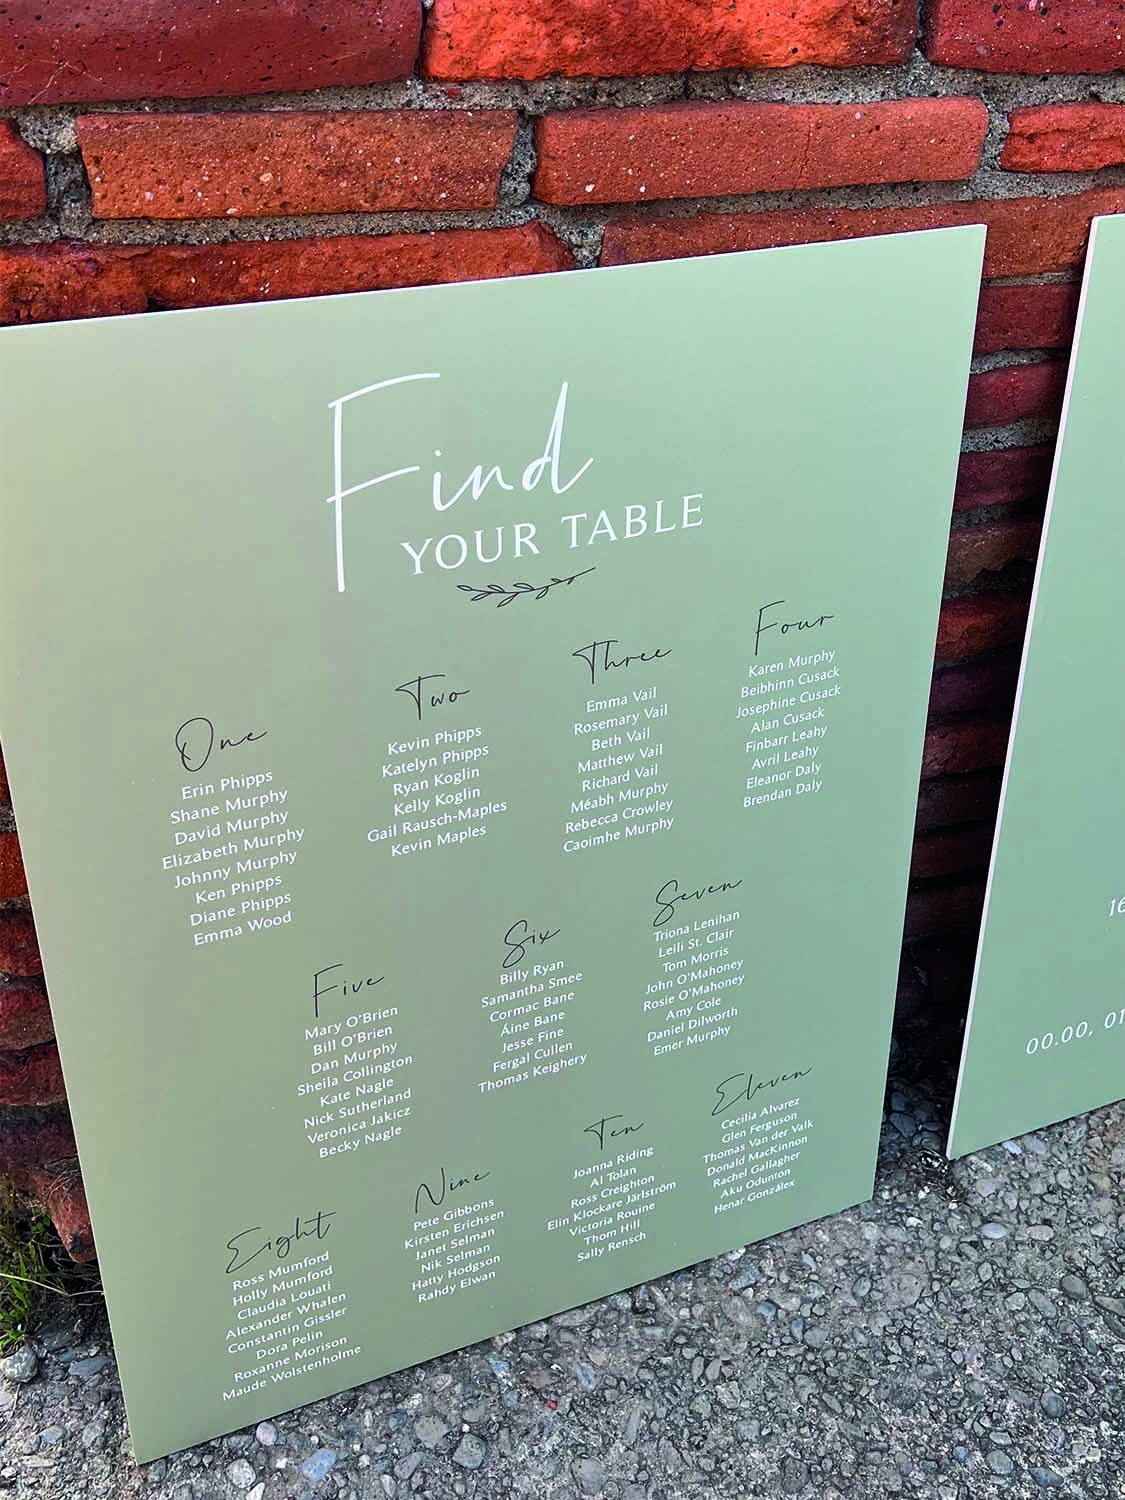 Find
YOUR TABLE
One
Erin Phipps
Shane Murphy
David Murphy
Elizabeth Murphy
Johnny Murphy
Ken Phipps
Diane Phipps
Emma Wood
Two
Kevin Phipps
Katelyn Phipps
Ryan Koglin
Kelly Koglin
Gail Rausch-Maples
Kevin Maples
Three
Emma Vail
Rosemary Vail
Beth Vail
Matthew Vail
Richard Vail
Méabh Murphy
Rebecca Crowley
Caoimhe Murphy
Four
Karen Murphy
Beibhinn Cusack
Josephine Cusack
Alan Cusack
Finbarr Leahy
Avril Leahy
Eleanor Daly
Brendan Daly
Five
Mary O'Brien
Bill O'Brien
Dan Murphy
Sheila Collington
Kate Nagle
Nick Sutherland
Veronica Jakicz
Becky Nagle
Six
Billy Ryan
Samantha Smee
Cormac Bane
Áine Bane
Jesse Fine
Fergal Cullen
Thomas Keighery
Seven
Triona Lenihan
Leili St. Clair
Tom Morris
John O'Mahoney
Rosie O'Mahoney
Amy Cole
Daniel Dilworth
Emer Murphy
Eight
Ross Mumford
Holly Mumford
Claudia Louati
Alexander Whalen
Constantin Gissler
Dora Pelin
Roxanne Morison
Maude Wolstenholme
Nine
Pete Gibbons
Kirsten Erichsen
Janet Selman
Nik Selman
Hatty Hodgson
Rahdy Elwan
Ten
Joanna Riding
Al Tolan
Ross Creighton
Elin Klockare Järlström
Victoria Rouine
Thom Hill
Sally Rensch
Eleven
Cecilia Alvarez
Glen Ferguson
Thomas Van der Valk
Donald MacKinnon
Rachel Gallagher
Aku Odunton
Henar González
16
00.00, 01